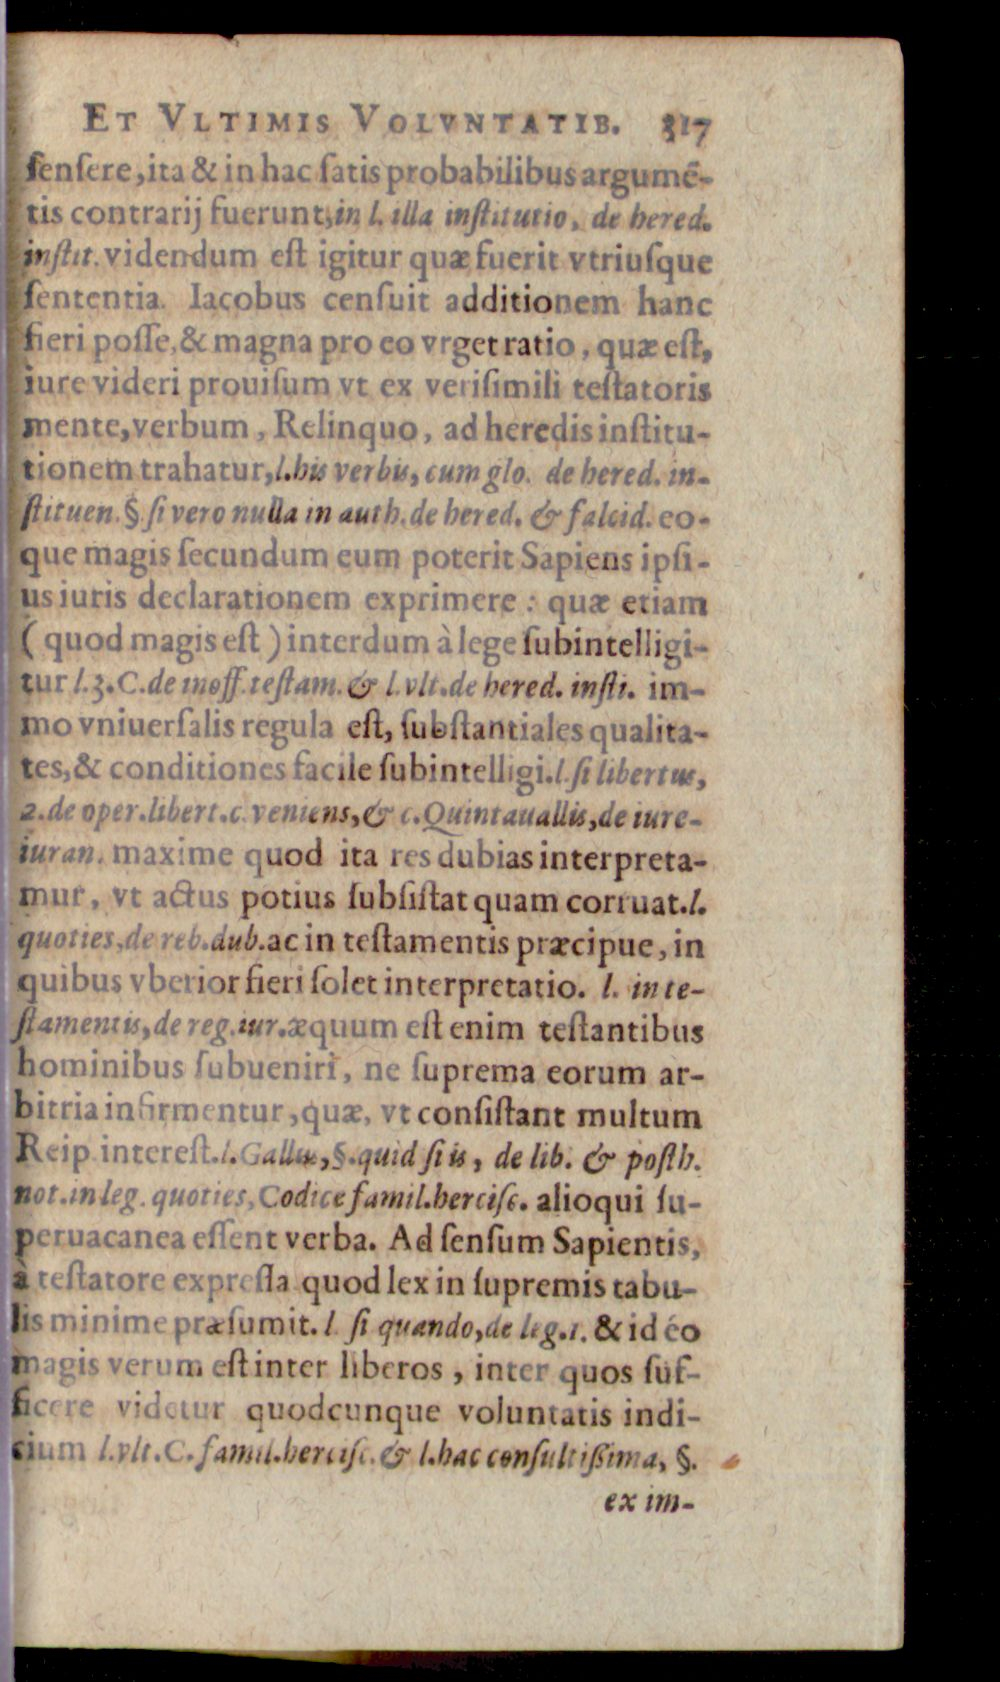 ET VLTIMIS VOLVNTATIB. 317
ſenſere, ita & in hac ſatis probabilibus argumẽ-
tis contrarij fuerunt, in l. illa inſtitutio, de hered.
inſtit. videndum eſt igitur quæ fuerit vtriuſque
ſententia. Iacobus cenſuit additionem hanc
fieri poſſe, & magna pro eo vrget ratio, quæ eſt,
iure videri prouiſum vt ex veriſimili teſtatoris
mente, verbum, Relinquo, ad heredis inſtitu-
tionem trahatur, l. his verbis, cum glo. de hered. in-
ſtituen. §. ſi vero nulla in auth. de hered. & falcid. eo-
que magis ſecundum eum poterit Sapiens ipſi-
us iuris declarationem exprimere: quæ etiam
(quod magis eſt) interdum à lege ſubintelligi-
tur l. 3. C. de inoff. teſtam. & l. vlt. de hered. inſti. im-
mo vniuerſalis regula eſt, ſubſtantiales qualita-
tes, & conditiones facile ſubintelligi. l. ſi libertus,
2. de oper. libert. c. veniens, & c. Quintauallis, de iure-
iuran. maxime quod ita res dubias interpreta-
mur, vt actus potius ſubſiſtat quam corruat. l.
quoties, de reb. dub. ac in teſtamentis præcipue, in
quibus vberior fieri ſolet interpretatio. l. in te-
ſtamentis, de reg. iur. æquum eſt enim teſtantibus
hominibus ſubueniri, ne ſuprema eorum ar-
bitria infirmentur, quæ, vt conſiſtant multum
Reip. intereſt. l. Gallus, §. quid ſi is, de lib. & poſth.
not. in leg. quoties, Codice famil. herciſc. alioqui ſu-
peruacanea eſſent verba. Ad ſenſum Sapientis,
à teſtatore expreſſa quod lex in ſupremis tabu-
lis minime præſumit. l. ſi quando, de leg. 1. & id eo
magis verum eſt inter liberos, inter quos ſuf-
ficere videtur quodcunque voluntatis indi-
cium l. vlt. C. famil. herciſc. & l. hac conſultißima, §.
ex im-